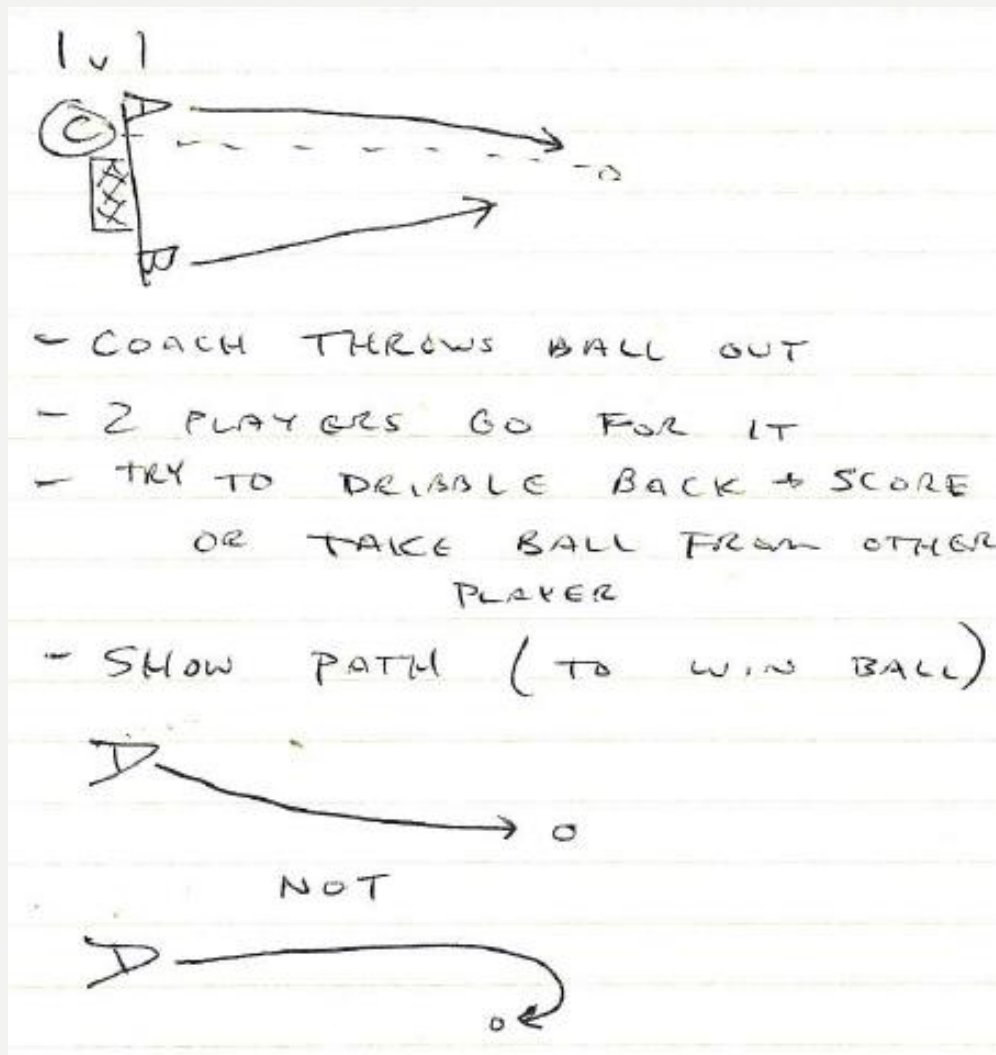 1 v 1
A
C
B
- COACH THROWS BALL OUT
- 2 PLAYERS GO FOR IT
- TRY TO DRIBBLE BACK + SCORE
OR TAKE BALL FROM OTHER
PLAYER
- SHOW PATH (TO WIN BALL)
A
NOT
A